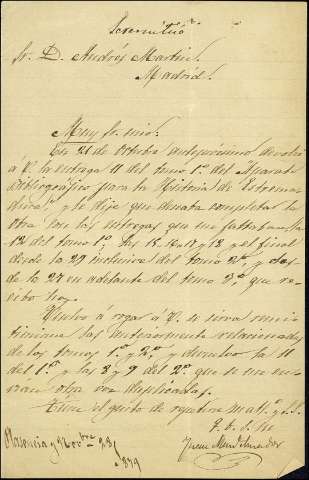 Sr. D. Andrés Martin.
Madrid.
Muy Sr. mio:
En 21 de Octubre antepróximo devolví
á V. la entrega 11 del tomo 1º. del Aparato
Bibliográfico para la Historia de Estrema
dura, y le dije que deseaba completar la
obra con las entregas que me faltaban la
12 del tomo 1º. las 15. 16. 17 y 18 y el final
desde la 29 inclusive del tomo 2º. y des
de la 27 en adelante del tomo 3º. que re
cibo hoy.
Vuelvo á rogar á V. se sirva
las anteriormente relacionadas
de los tomos 1º. y 2º. y devuelvo la 11
del 1º. y las 8 y 9 del 2º. que se me en
vian otra vez duplicadas.
Tiene el gusto de repetirse
Plasencia y 28
1879